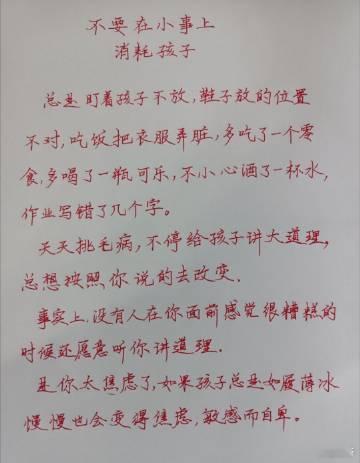 不要在小事上
消耗孩子
总是盯着孩子不放,鞋子放的位置
不对,吃饭把衣服弄脏,多吃了一个零
食,多喝了一瓶可乐,不小心洒了一杯水,
作业写错了几个字。
天天挑毛病,不停给孩子讲大道理,
总想按照你说的去改变.
事实上,没有人在你面前感觉很糟糕的
时候还愿意听你讲道理.
是你太焦虑了,如果孩子总是如履薄冰
慢慢也会变得焦虑,敏感而自卑。